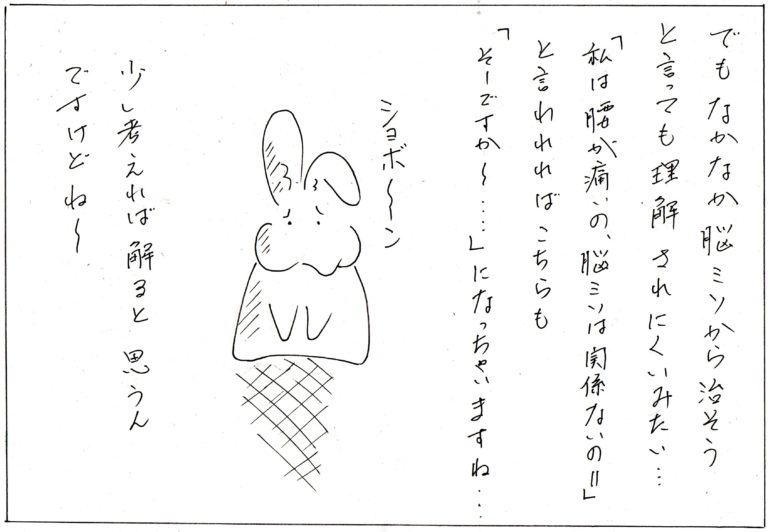 でもなかなか脳ミソから治そう
と言っても理解されにくいみたい…
「私は腰が痛いの、脳ミソは関係ないの!!」
と言われればこちらも
「そーですか〜……」になっちゃいますね…
ショボ〜〜ン
少し考えれば解ると思うん
ですけどね〜